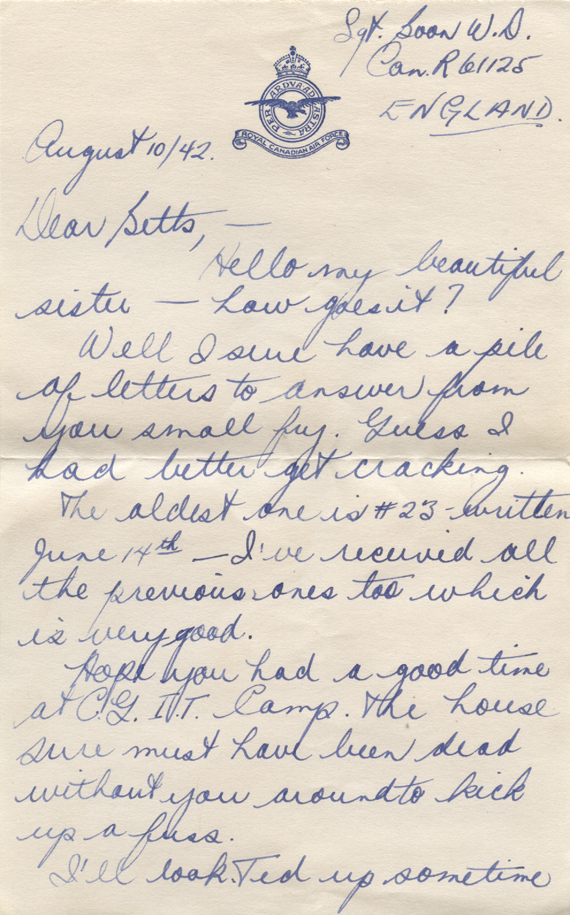 Sgt. Loon W.D.
Can. R 61125
ENGLAND.
PER ARDVA AD ASTRA
ROYAL CANADIAN AIR FORCE
August 10/42.
Dear Betts, —
Hello my beautiful
sister — how goes it?
Well I sure have a pile
of letters to answer from
you small fry. Guess I
had better get cracking.
The oldest one is #23 - written
June 14th — I've received all
the previous ones too which
is very good.
Hope you had a good time
at C.G.I.T. Camp. The house
sure must have been dead
without you around to kick
up a fuss.
I'll look Ted up sometime